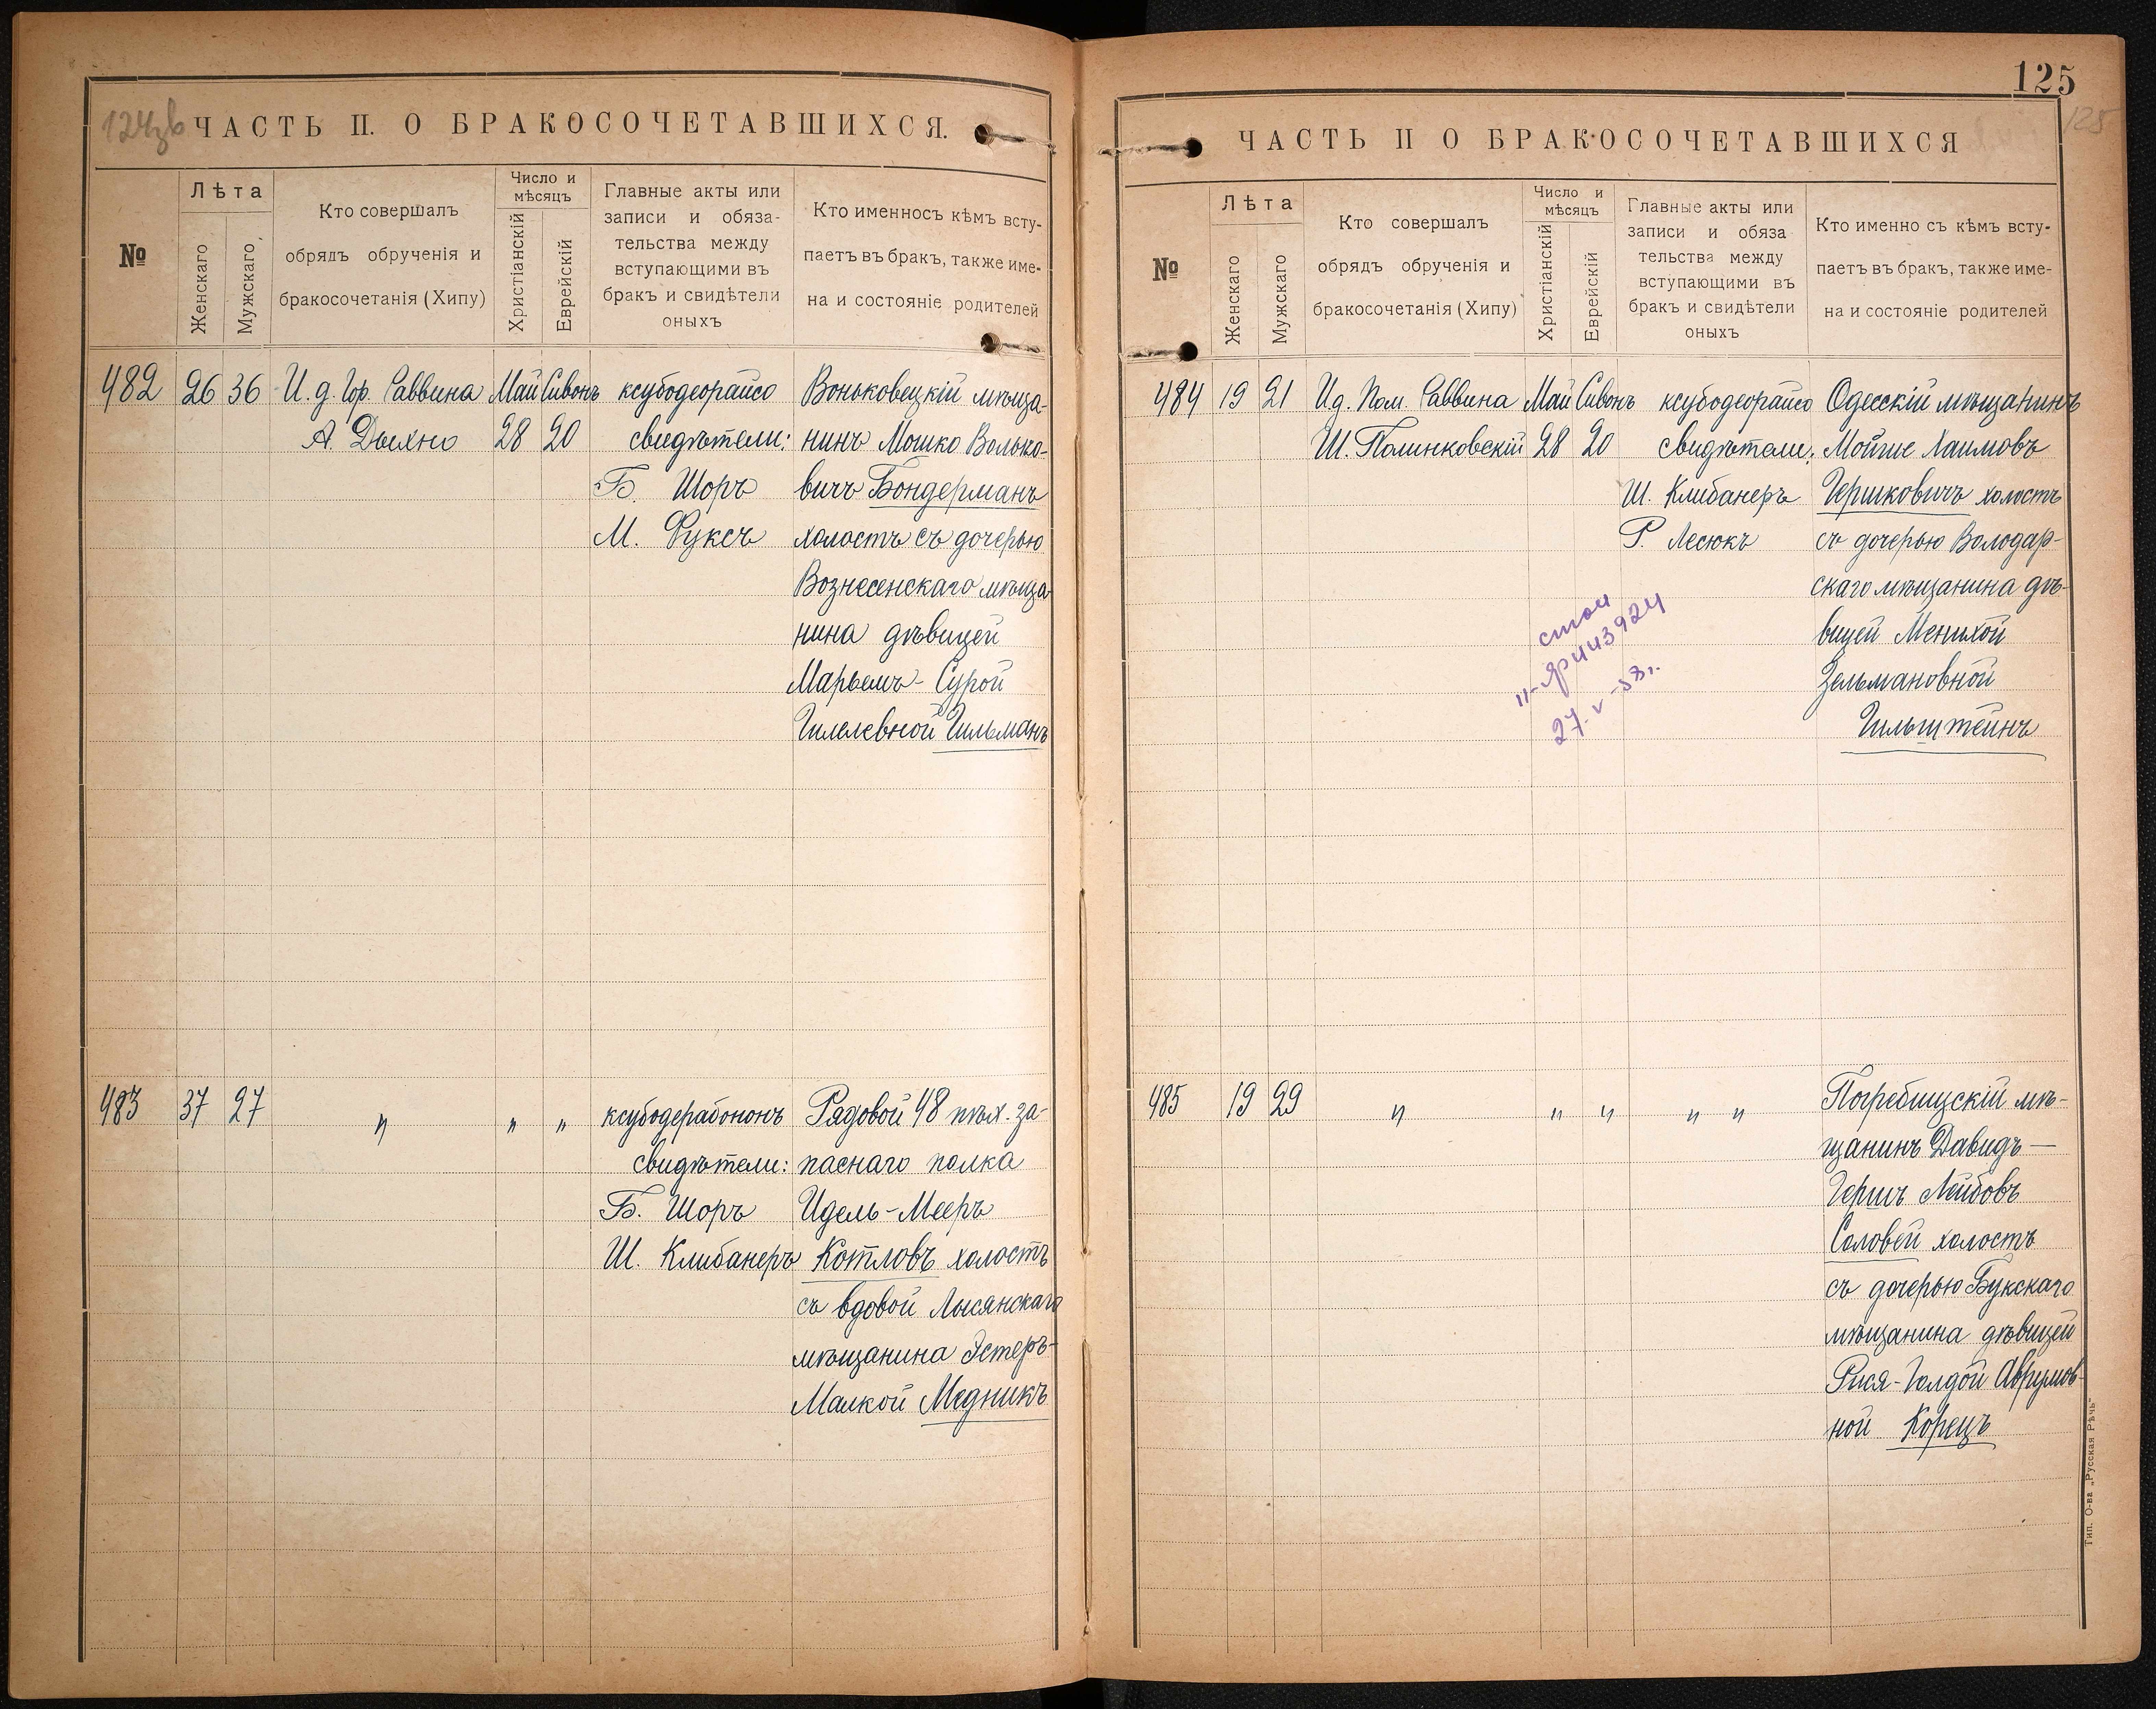 124зв
ЧАСТЬ II. О БРАКОСОЧЕТАВШИХСЯ.
№
Лѣта
Женскаго
Мужскаго
Кто совершалъ
обрядъ обрученія и
бракосочетанія (Хипу)
Число и
мѣсяцъ
Христіанскій
Еврейскій
Главные акты или
записи и обяза-
тельства между
вступающими въ
бракъ и свидѣтели
оныхъ
Кто именносъ кѣмъ всту-
паетъ въ бракъ, также име-
на и состояніе родителей
482 26 36 И. д. Гор. Раввина Май Сивонъ ксубодеорайсо Воньковецкій мѣща-
А. Дыхно 28 20 свидѣтели: нинъ Мошко Волько-
Б. Шоръ вичъ Бондерманъ
М. Фуксъ холостъ съ дочерью
Вознесенскаго мѣща
нина дѣвицей
Марьемъ-Сурой
Гилелевной Гильманъ
483 37 27 „ „ „ ксубодерабононъ Рядовой 48 пѣх. за-
свидѣтели: паснаго полка
Б. Шоръ Идель-Мееръ
Ш. Клибанеръ Котловъ холостъ
съ вдовой Лысянскаго
мѣщанина Эстеръ-
Малкой Медникъ
125
125
ЧАСТЬ II О БРАКОСОЧЕТАВШИХСЯ
№
Лѣта
Женскаго
Мужскаго
Кто совершалъ
обрядъ обрученія и
бракосочетанія (Хипу)
Число и
мѣсяцъ
Христіанскій
Еврейскій
Главные акты или
записи и обяза
тельства между
вступающими въ
бракъ и свидѣтели
оныхъ
Кто именно съ кѣмъ всту-
паетъ въ бракъ, также име-
на и состояніе родителей
484 19 21 И д. Пом. Раввина Май Сивонъ ксубодеорайсо Одесскій мѣщанинъ
Ш. Полинковскій 28 20 свидѣтели: Мойше Хаимовъ
Ш. Клибанеръ Гершковичъ холостъ
Р. Лесюкъ съ дочерью Володар-
скаго мѣщанина дѣ-
вицей Менихой
Зельмановной
Гильштейнъ
27-V-58г.
485 19 29 „ „ „ „ „ Погребищскій мѣ-
щанинъ Давидъ—
Гершъ Лейбовъ
Соловей холостъ
съ дочерью Букскаго
мѣщанина дѣвицей
Рися-Голдой Аврумов-
ной Корецъ
Тип. О-ва „Русская Рѣчь"